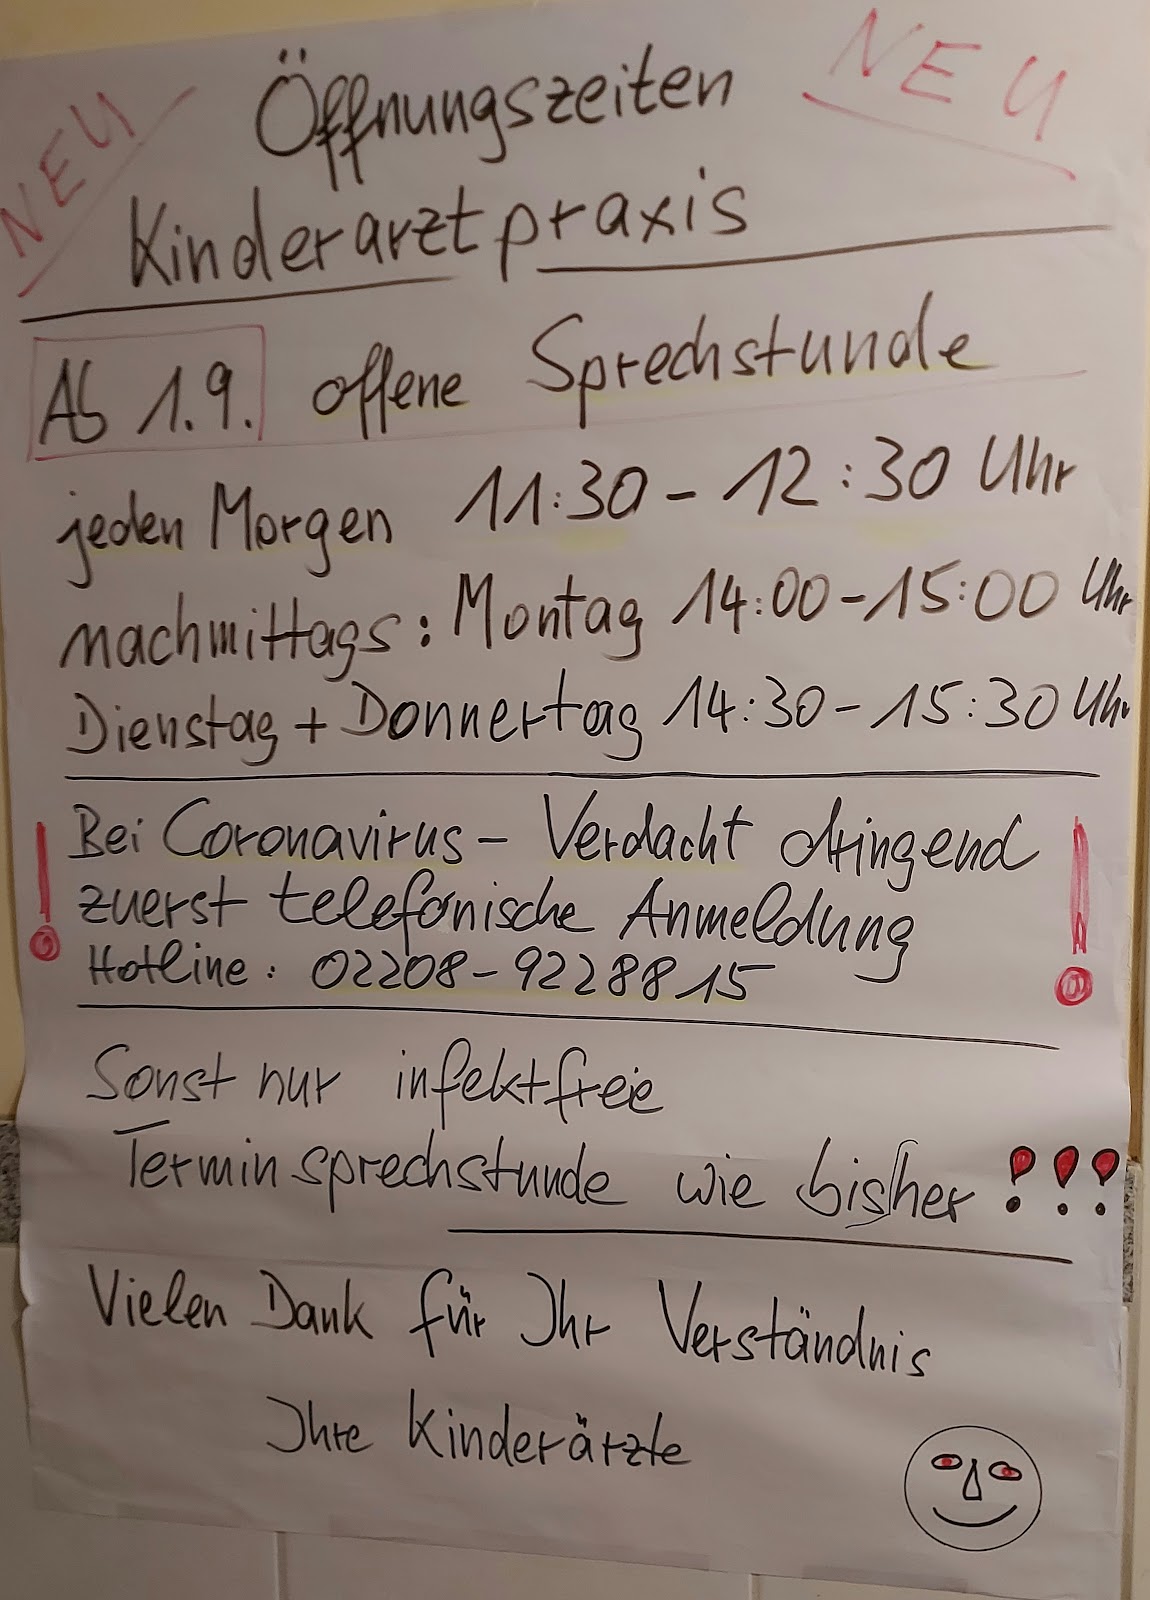 NEU
Öffnungszeiten
NEU
Kinderarztpraxis
Ab 1.9. offene Sprechstunde
jeden Morgen 11:30 - 12:30 Uhr
nachmittags: Montag 14:00-15:00 Uhr
Dienstag + Donnertag 14:30-15:30 Uhr
Bei Coronavirus - Verdacht dringend
zuerst telefonische Anmeldung
! !
Hotline: 02208-9228815
Sonst nur infektfreie
Terminsprechstunde wie bisher !!!
Vielen Dank für Ihr Verständnis
Ihre Kinderärzte